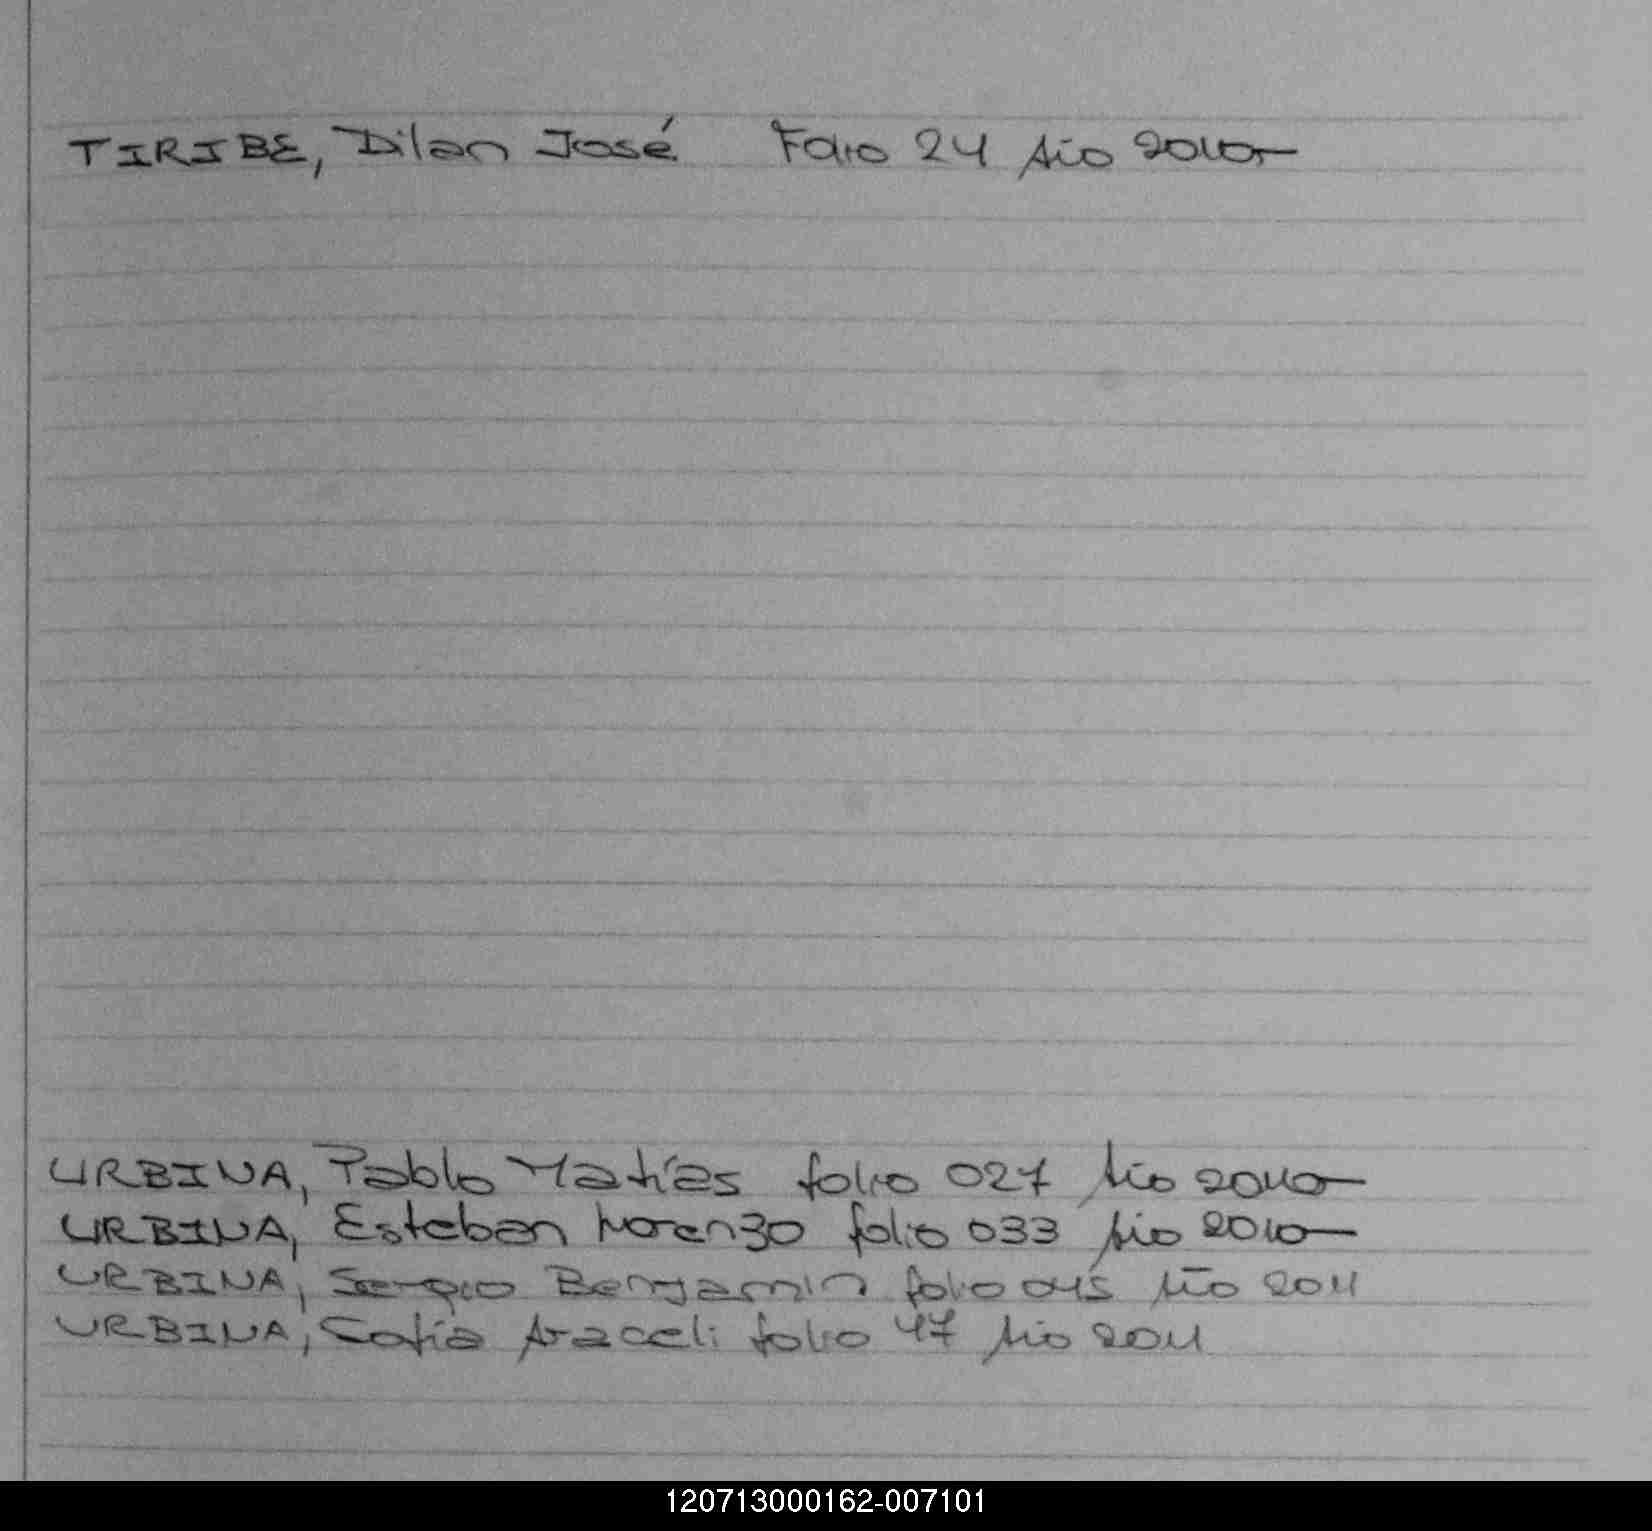 TIRIBE, Dilan José Folio 24 Año 2010
URBINA, Pablo Matías folio 027 Año 2010
URBINA, Esteban Lorenzo folio 033 Año 2010
URBINA, Sergio Benjamin folio 045 Año 2011
URBINA, Sofia Araceli folio 47 Año 2011
120713000162-007101